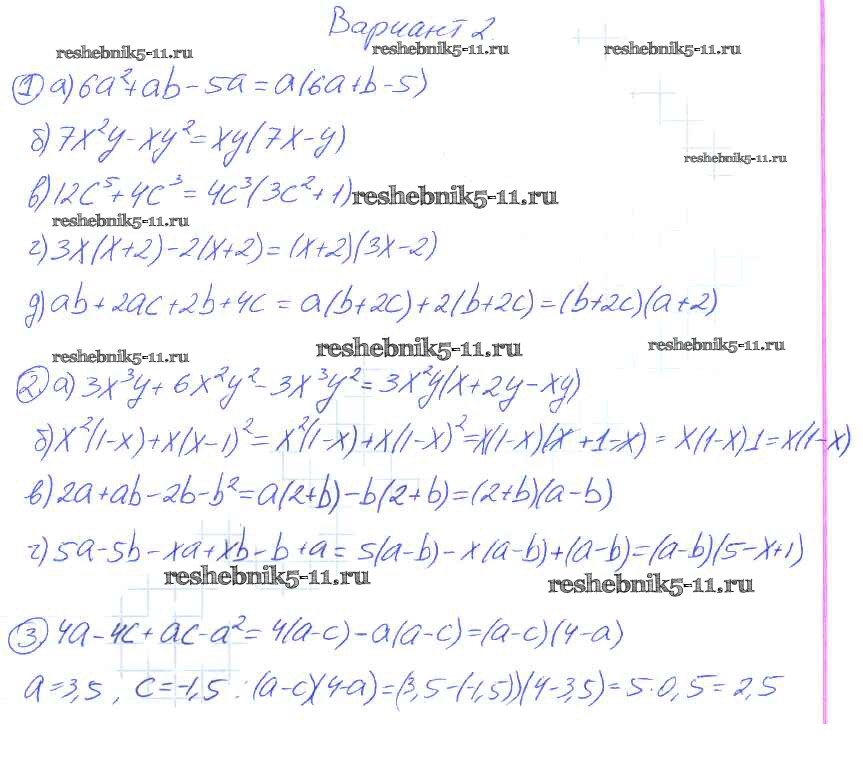 Вариант 2.
reshebnik5-11.ru reshebnik5-11.ru reshebnik5-11.ru
1 а) 6a²+ab-5a=a(6a+b-5)
б) 7x²y-xy²=xy(7x-y)
reshebnik5-11.ru
в) 12c⁵+4c³=4c³(3c²+1) reshebnik5-11.ru
reshebnik5-11.ru
г) 3x(x+2)-2(x+2)=(x+2)(3x-2)
д) ab+2ac+2b+4c=a(b+2c)+2(b+2c)=(b+2c)(a+2)
reshebnik5-11.ru reshebnik5-11.ru reshebnik5-11.ru
2 а) 3x³y+6x²y²-3x³y²=3x²y(x+2y-xy)
б) x²(1-x)+x(x-1)²=x²(1-x)+x(1-x)²=x(1-x)(x+1-x)=x(1-x)1=x(1-x)
в) 2a+ab-2b-b²=a(2+b)-b(2+b)=(2+b)(a-b)
г) 5a-5b-xa+xb-b+a=5(a-b)-x(a-b)+(a-b)=(a-b)(5-x+1)
reshebnik5-11.ru reshebnik5-11.ru
3 4a-4c+ac-a²=4(a-c)-a(a-c)=(a-c)(4-a)
a=3,5, c=-1,5: (a-c)(4-a)=(3,5-(-1,5))(4-3,5)=5·0,5=2,5